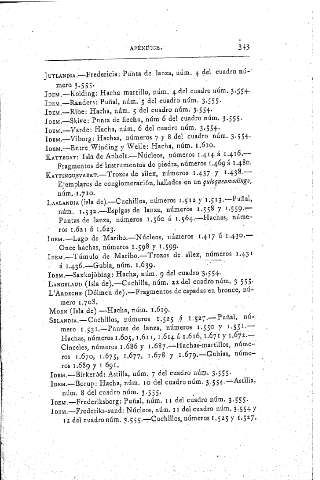 APÉNDICE. 343
JUTLANDIA.—Fredericia: Punta de lanza, núm. 4 del cuadro nú-
mero 3.555.
IDEM.—Kolding: Hacha martillo, núm. 4 del cuadro núm. 3.554.
IDEM.—Randers: Puñal, núm. 5 del cuadro núm. 3.555.
IDEM.—Ribe: Hacha, núm. 5 del cuadro núm. 3.554.
IDEM.—Skive: Punta de flecha, núm 6 del cuadro núm. 3.555.
IDEM.—Varde: Hacha, núm. 6 del cuadro núm. 3.554.
IDEM.—Viburg: Hachas, números 7 y 8 del cuadro núm. 3.554.
IDEM.—Entre Winding y Weile: Hacha, núm. 1.610.
KATTEGAT: Isla de Anholt.—Núcleos, números 1.414 á 1.416.—
Fragmentos de instrumentos de piedra, números 1.469 á 1.480.
KATTINGSVÆRAT.—Trozos de sílex, números 1.437 y 1.438.—
Ejemplares de conglomeración, hallados en un
núm. 1.710.
LAALANDIA (isla de).—Cuchillos, números 1.512 y 1.513.—Puñal,
núm. 1.532.—Espigas de lanza, números 1.558 y 1.559.—
Puntas de lanza, números 1.560 á 1.564.—Hachas, núme-
ros 1.621 á 1.623.
IDEM.—Lago de Maribo.—Núcleos, números 1.417 á 1.430.—
Once hachas, números 1.598 y 1.599.
IDEM.—Túmulo de Maribo.—Trozos de sílex, números 1.431
á 1.436.—Gubia, núm. 1.639.
IDEM.—Saxkojöbing: Hacha, núm. 9 del cuadro 3.554.
LANGELAUD (Isla de).—Cuchilla, núm. 22 del cuadro núm 3.555.
L'ARDECHE (Dólmen de).—Fragmentos de espadas en bronce, nú-
mero 1.708.
MOEN (Isla de) —Hacha, núm. 1.619.
SELANDIA.—Cuchillos, números 1.525 á 1.527.—Puñal, nú-
mero 1.531.—Puntas de lanza, números 1.550 y 1.551.—
Hachas, números 1.605, 1.611, 1.614 á 1.616, 1.671 y 1.672.—
Cinceles, números 1.686 y 1.687.—Hachas-martillos, núme-
ros 1.670, 1.675, 1.677, 1.678 y 1.679.—Gubias, núme-
ros 1.689 y 1 691.
IDEM.—Birkeröd: Astilla, núm. 7 del cuadro núm. 3.555.
IDEM.—Borup: Hacha, núm. 10 del cuadro núm. 3.554.—Astilla,
núm. 8 del cuadro núm. 3.555.
IDEM.—Frederiksborg: Puñal, núm. 11 del cuadro núm. 3.555.
IDEM.—Frederiks-sund: Núcleos, núm. 11 del cuadro núm. 3.554 y
12 del cuadro núm. 3.555.—Cuchillos, números 1.525 y 1.527.